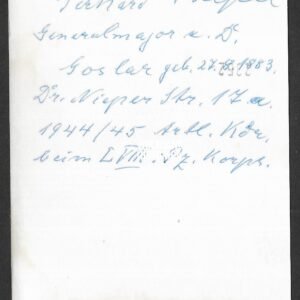 Gerhard
Generalmajor a. D.
Goslar geb. 27.8.1883.
Dr. Nieper Str. 17 a
1944/45 Artl. Kdr.
beim LVIII. Pz. Korps.